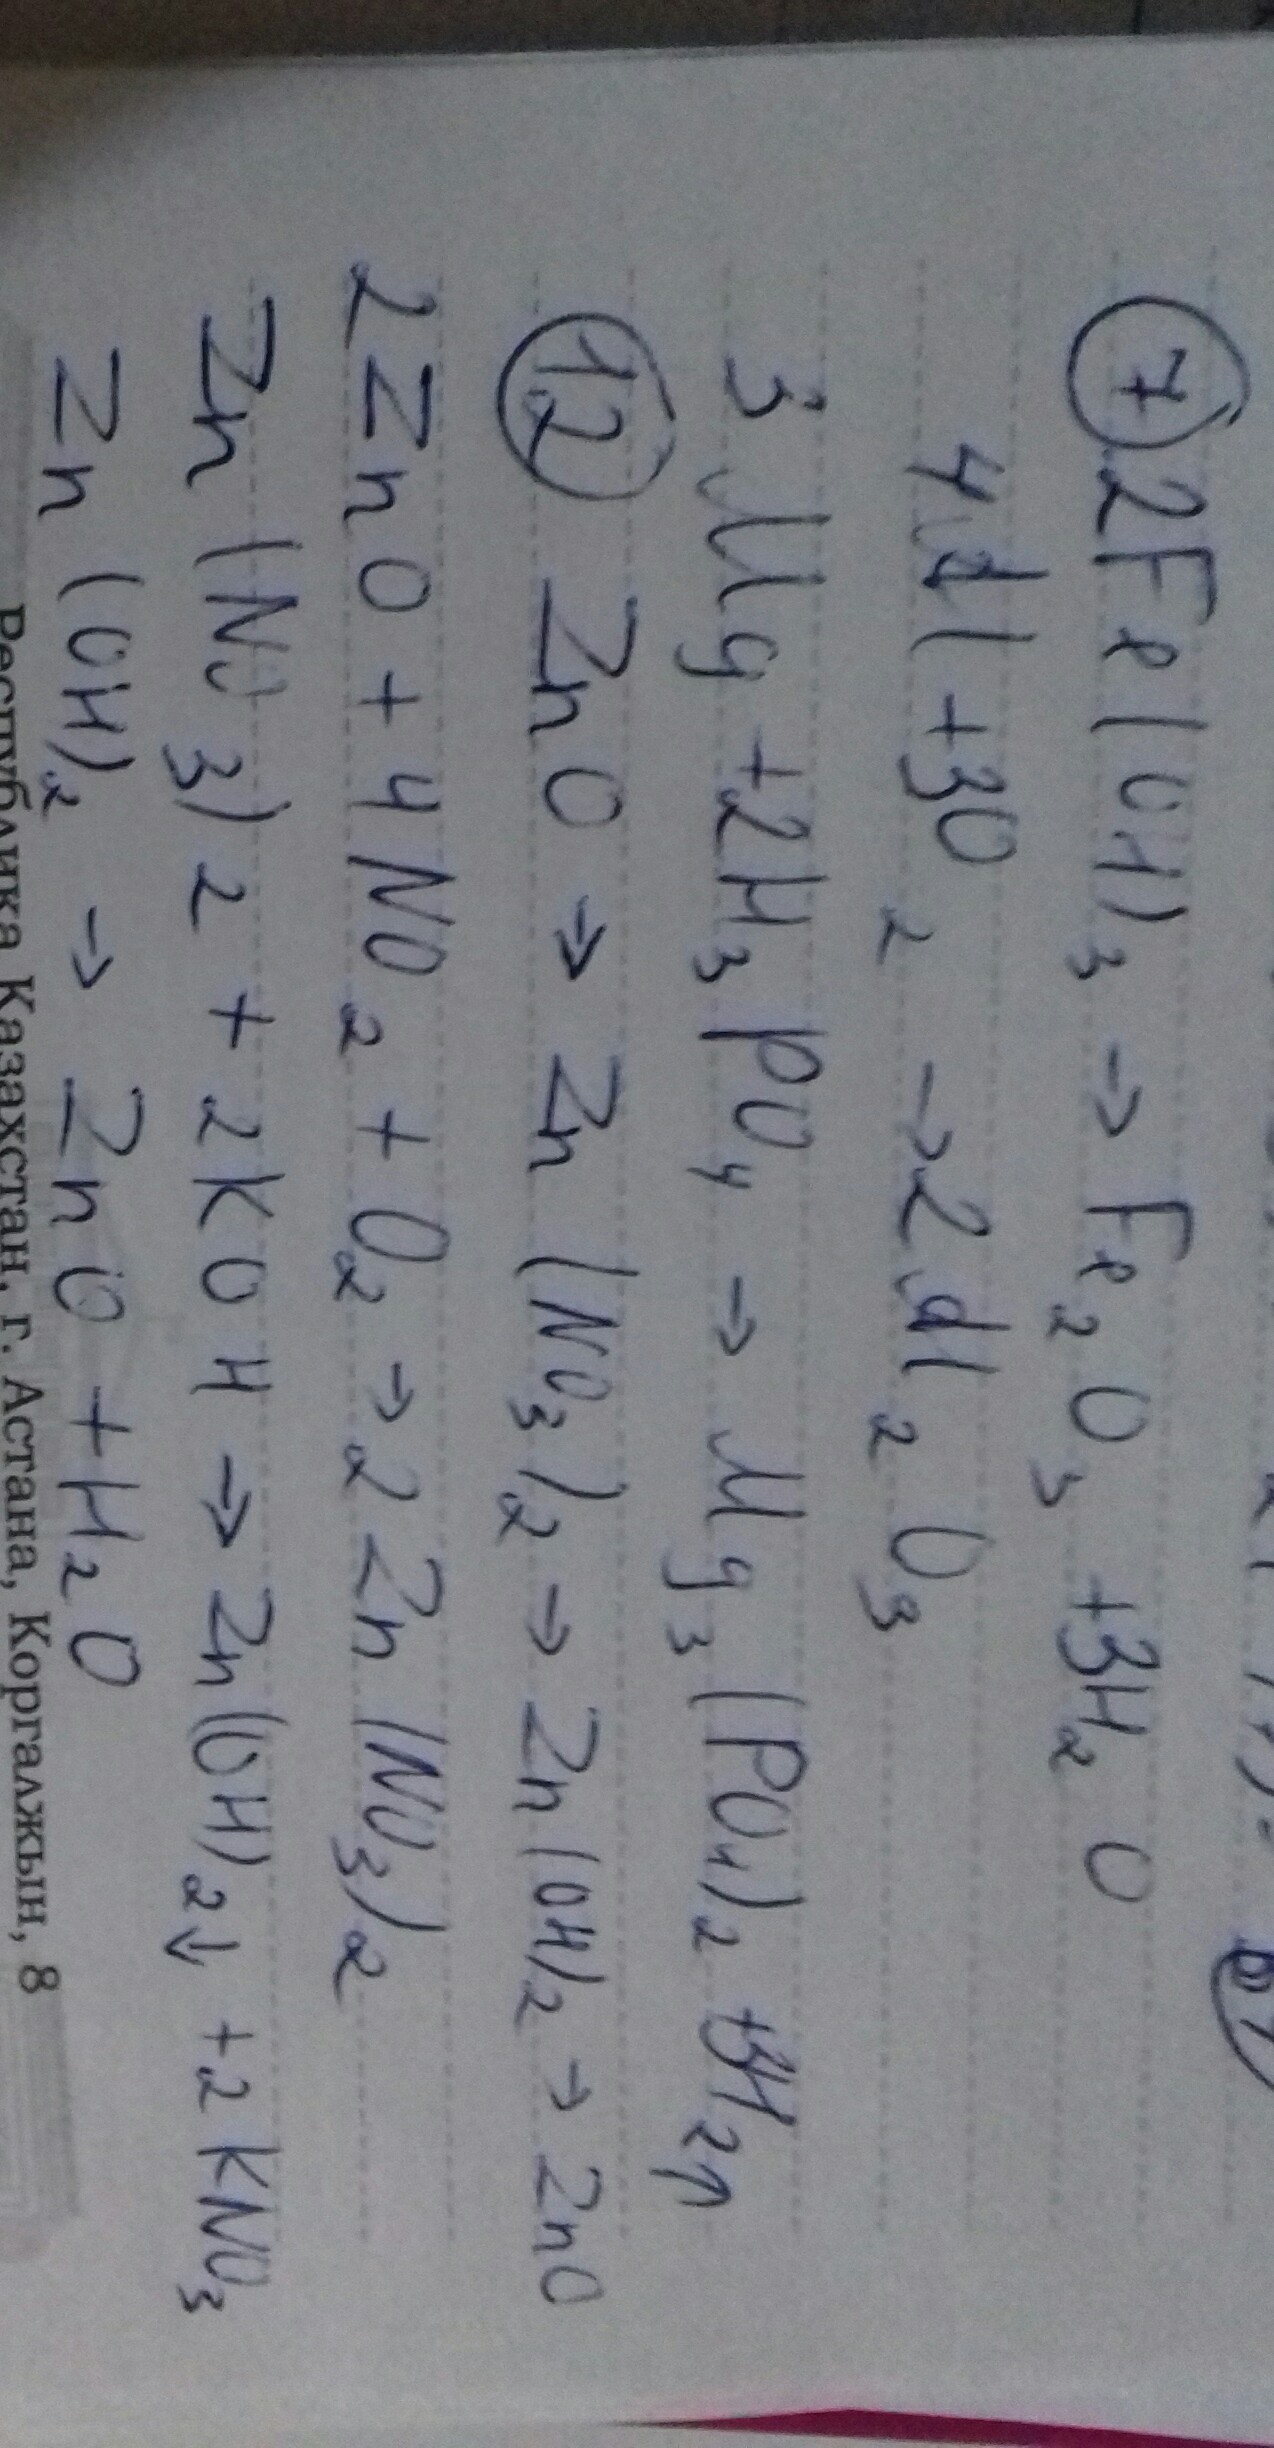 7) 2Fe(OH)3 → Fe2O3 + 3H2O
4Al + 3O2 → 2Al2O3
3Mg + 2H3PO4 → Mg3(PO4)2 + 3H2↑
12) ZnO → Zn(NO3)2 → Zn(OH)2 → ZnO
2ZnO + 4NO2 + O2 → 2Zn(NO3)2
Zn(NO3)2 + 2KOH → Zn(OH)2↓ + 2KNO3
Zn(OH)2 → ZnO + H2O
Республика Казахстан, г. Астана, Коргалжын, 8